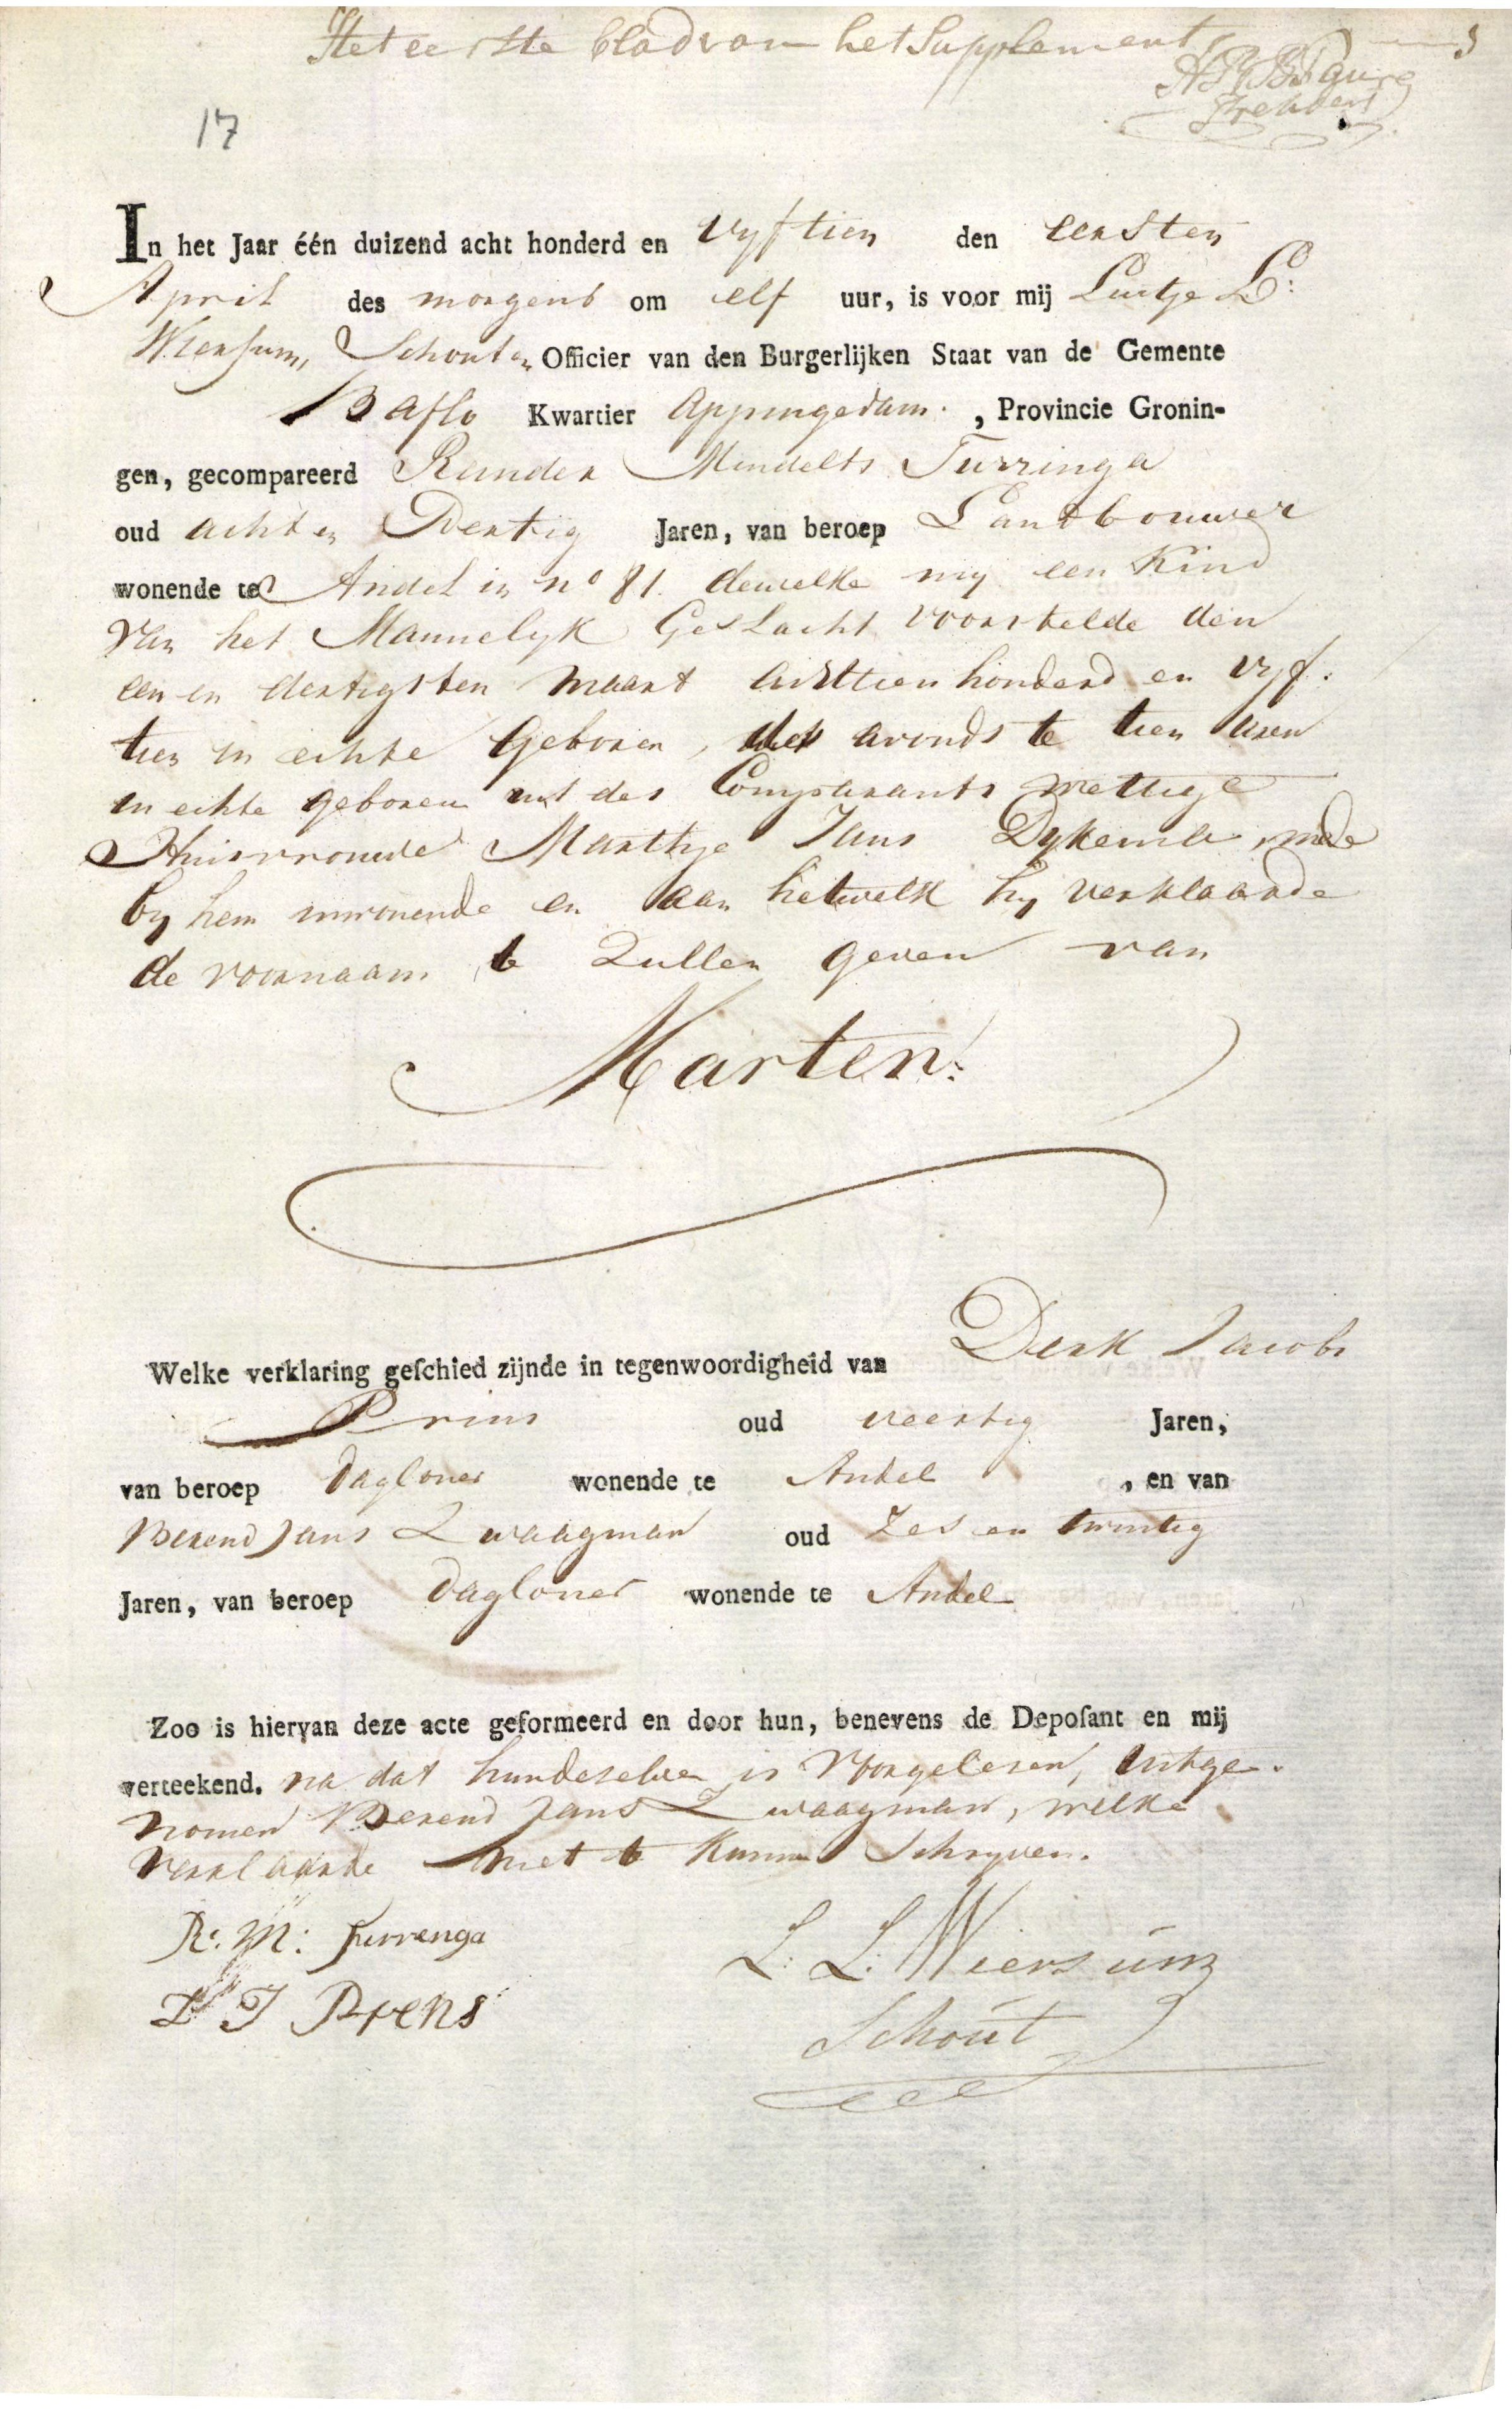 Het eerste blad van het Supplement
17
In het Jaar één duizend acht honderd en vyftien den eersten
April des morgens om elf uur, is voor mij Luitje L:
Wiersum, Schout en Officier van den Burgerlijken Staat van de Gemente
Baflo Kwartier Appingedam. , Provincie Gronin-
gen, gecompareerd Reinder Mindelts Turringa
oud acht en Dertig Jaren, van beroep Landbouwer
wonende te Andel in no 81. dewelke my een Kind
van het Mannelyk Geslacht voorstelde den
een en dertigsten maart achttien honderd en vyf:
tien in echte Geboren, des avonds te tien uren
in echte geboren uit des Comparants wettige
Huisvrouwe Marthje Jans Dykema, mede
by hem inwonende en aan hetwelk hy verklaarde
de voornaam te Zullen geven van
Marten:
Welke verklaring geſchied zijnde in tegenwoordigheid van Derk Jacobs
Prins oud veertig Jaren,
van beroep dagloner wonende te Andel , en van
Berend Jans Zwaagman oud Zes en twintig
Jaren, van beroep dagloner wonende te Andel
Zoo is hiervan deze acte geformeerd en door hun, benevens de Depoſant en mij
verteekend. na dat hundeselve is Voorgelesen, uitge-
nomen Berend Jans Zwaagman, welke
verklaarde niet te kunnen Schryven.
R: M: Turrenga
D J Prens
L: L: Wiersum
Schout